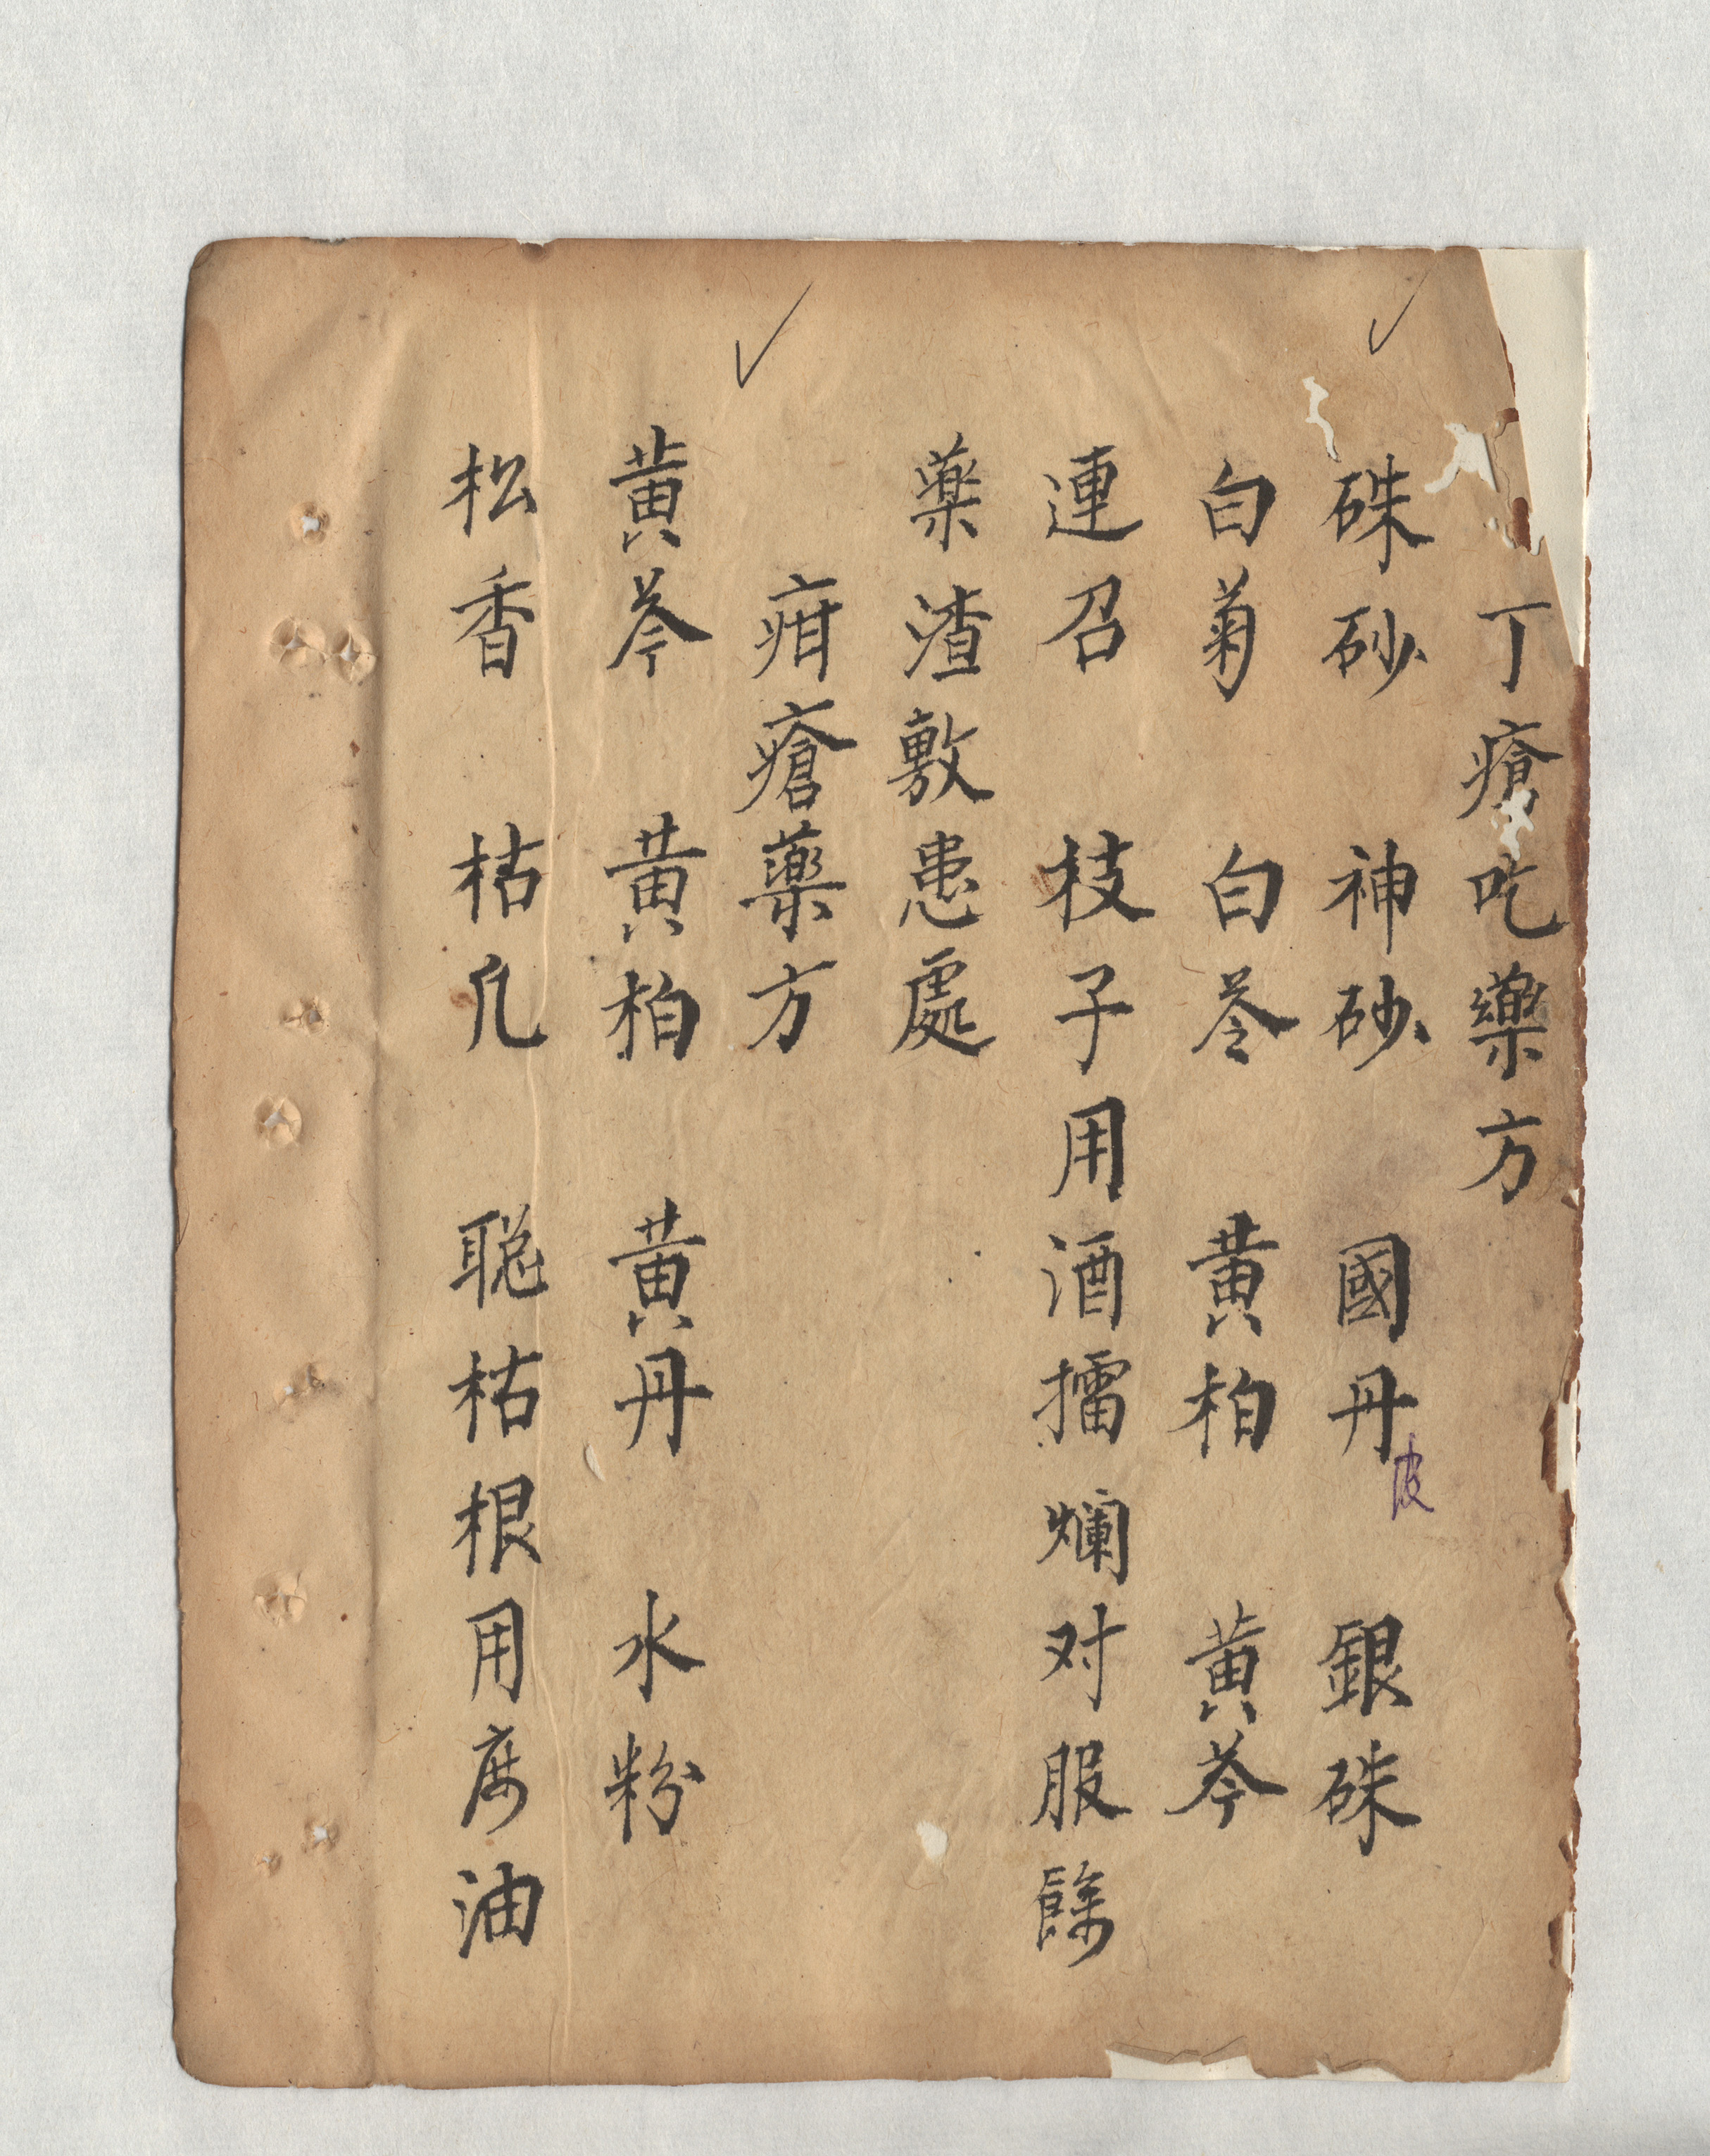 丁瘡吃藥方
硃砂 神砂 國丹皮 銀硃
白菊 白苓 黄柏 黄芩
連召 枝子用酒擂爛对服餘
藥渣敷患處
疳瘡藥方
黄芩 黄柏 黄丹 水粉
松香 枯凡 聪枯根用 油